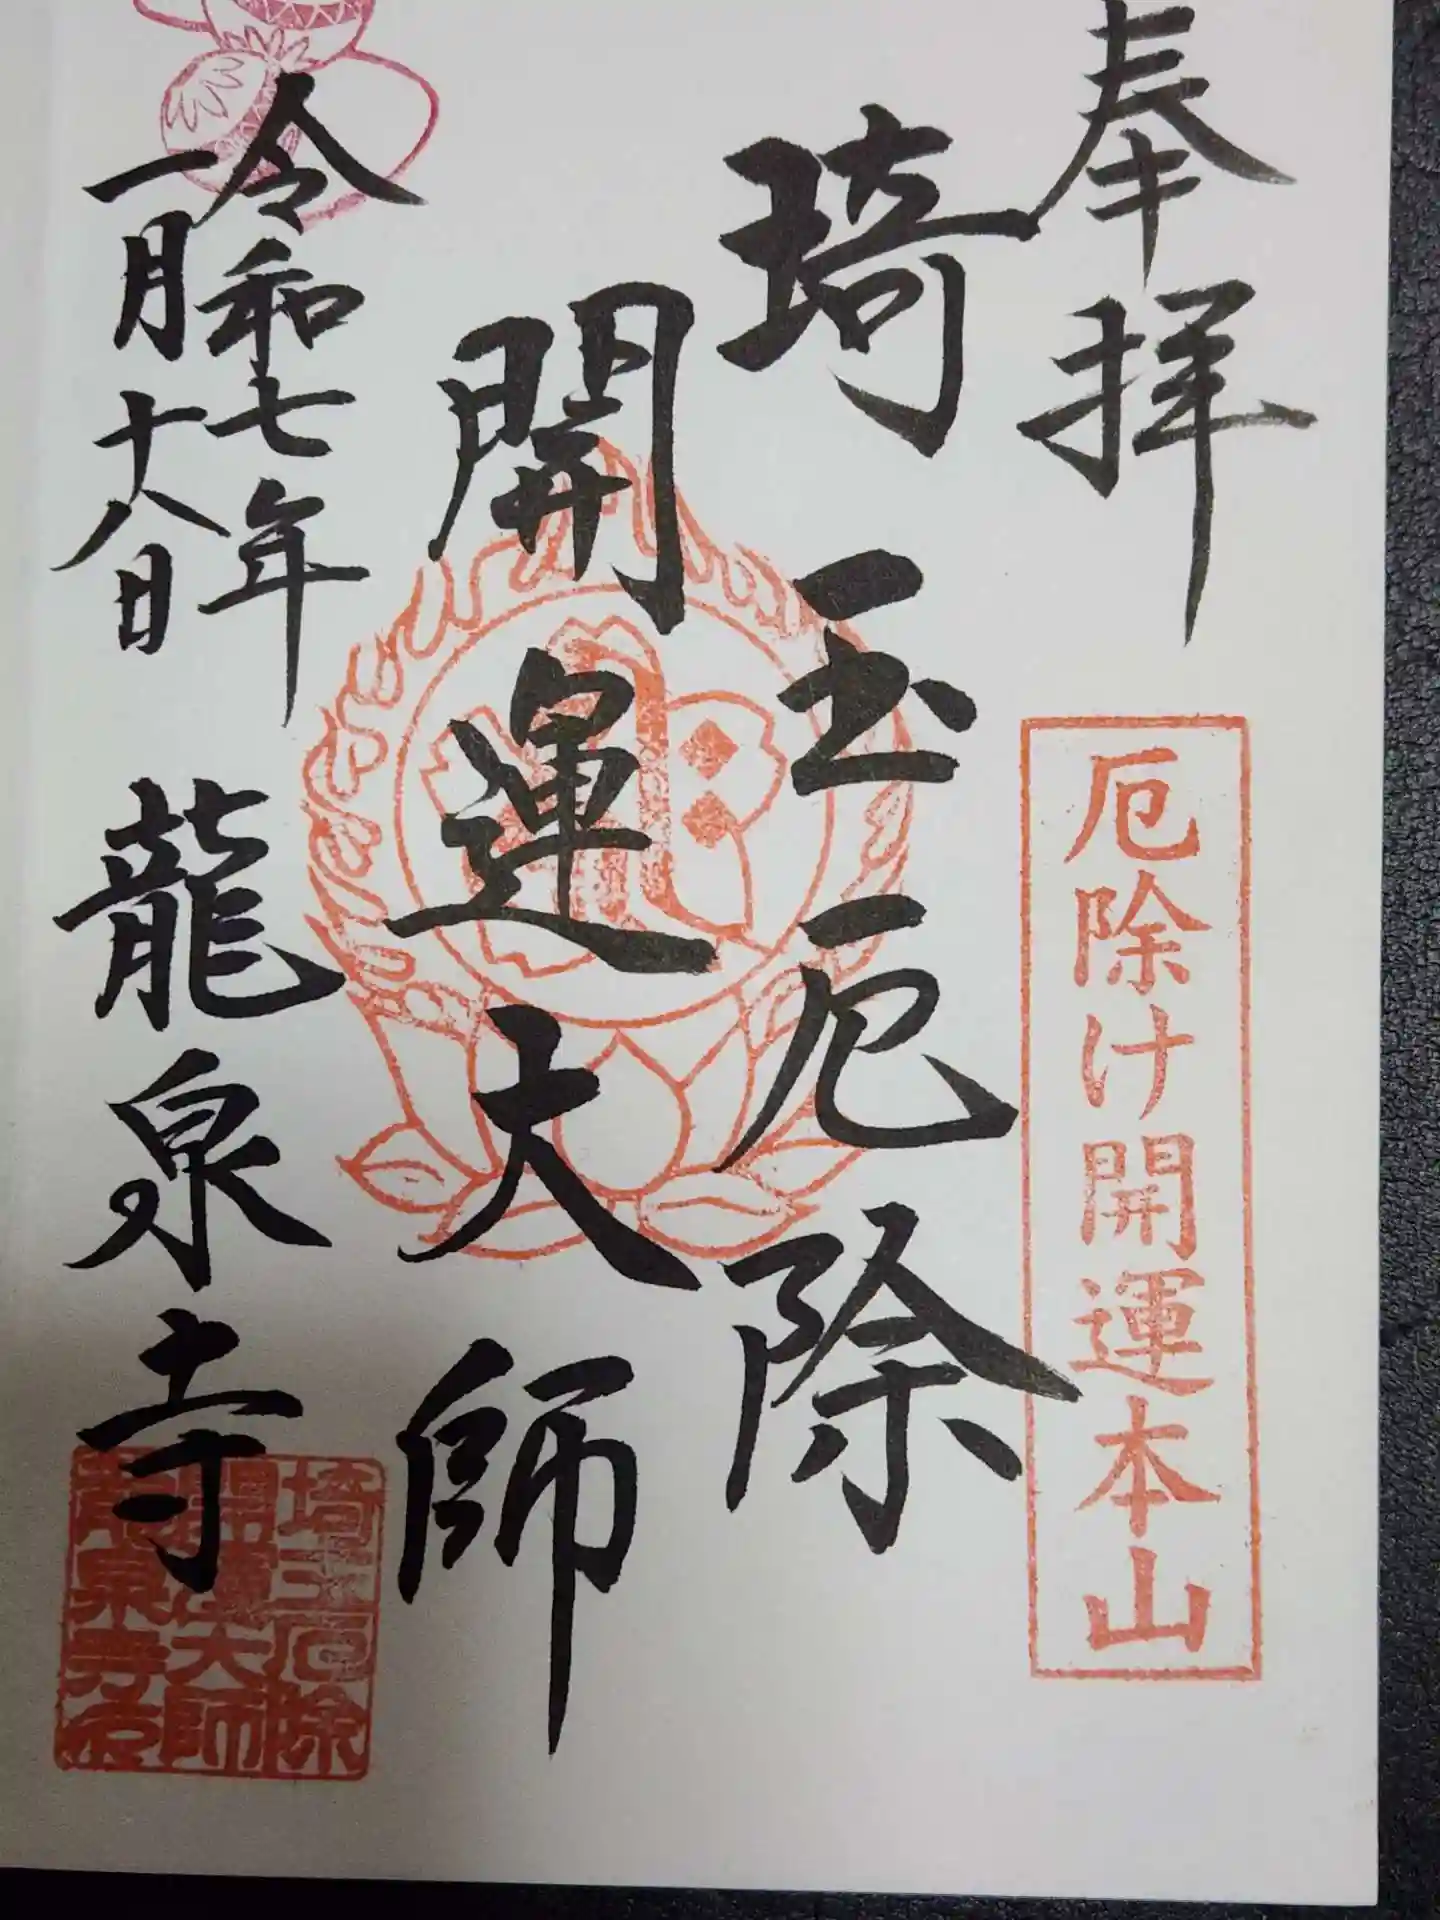 奉拝
厄除け開運本山
埼玉厄除
開運大師
令和七年
一月十八日
龍泉寺
埼玉厄除
開運大師
龍泉寺印